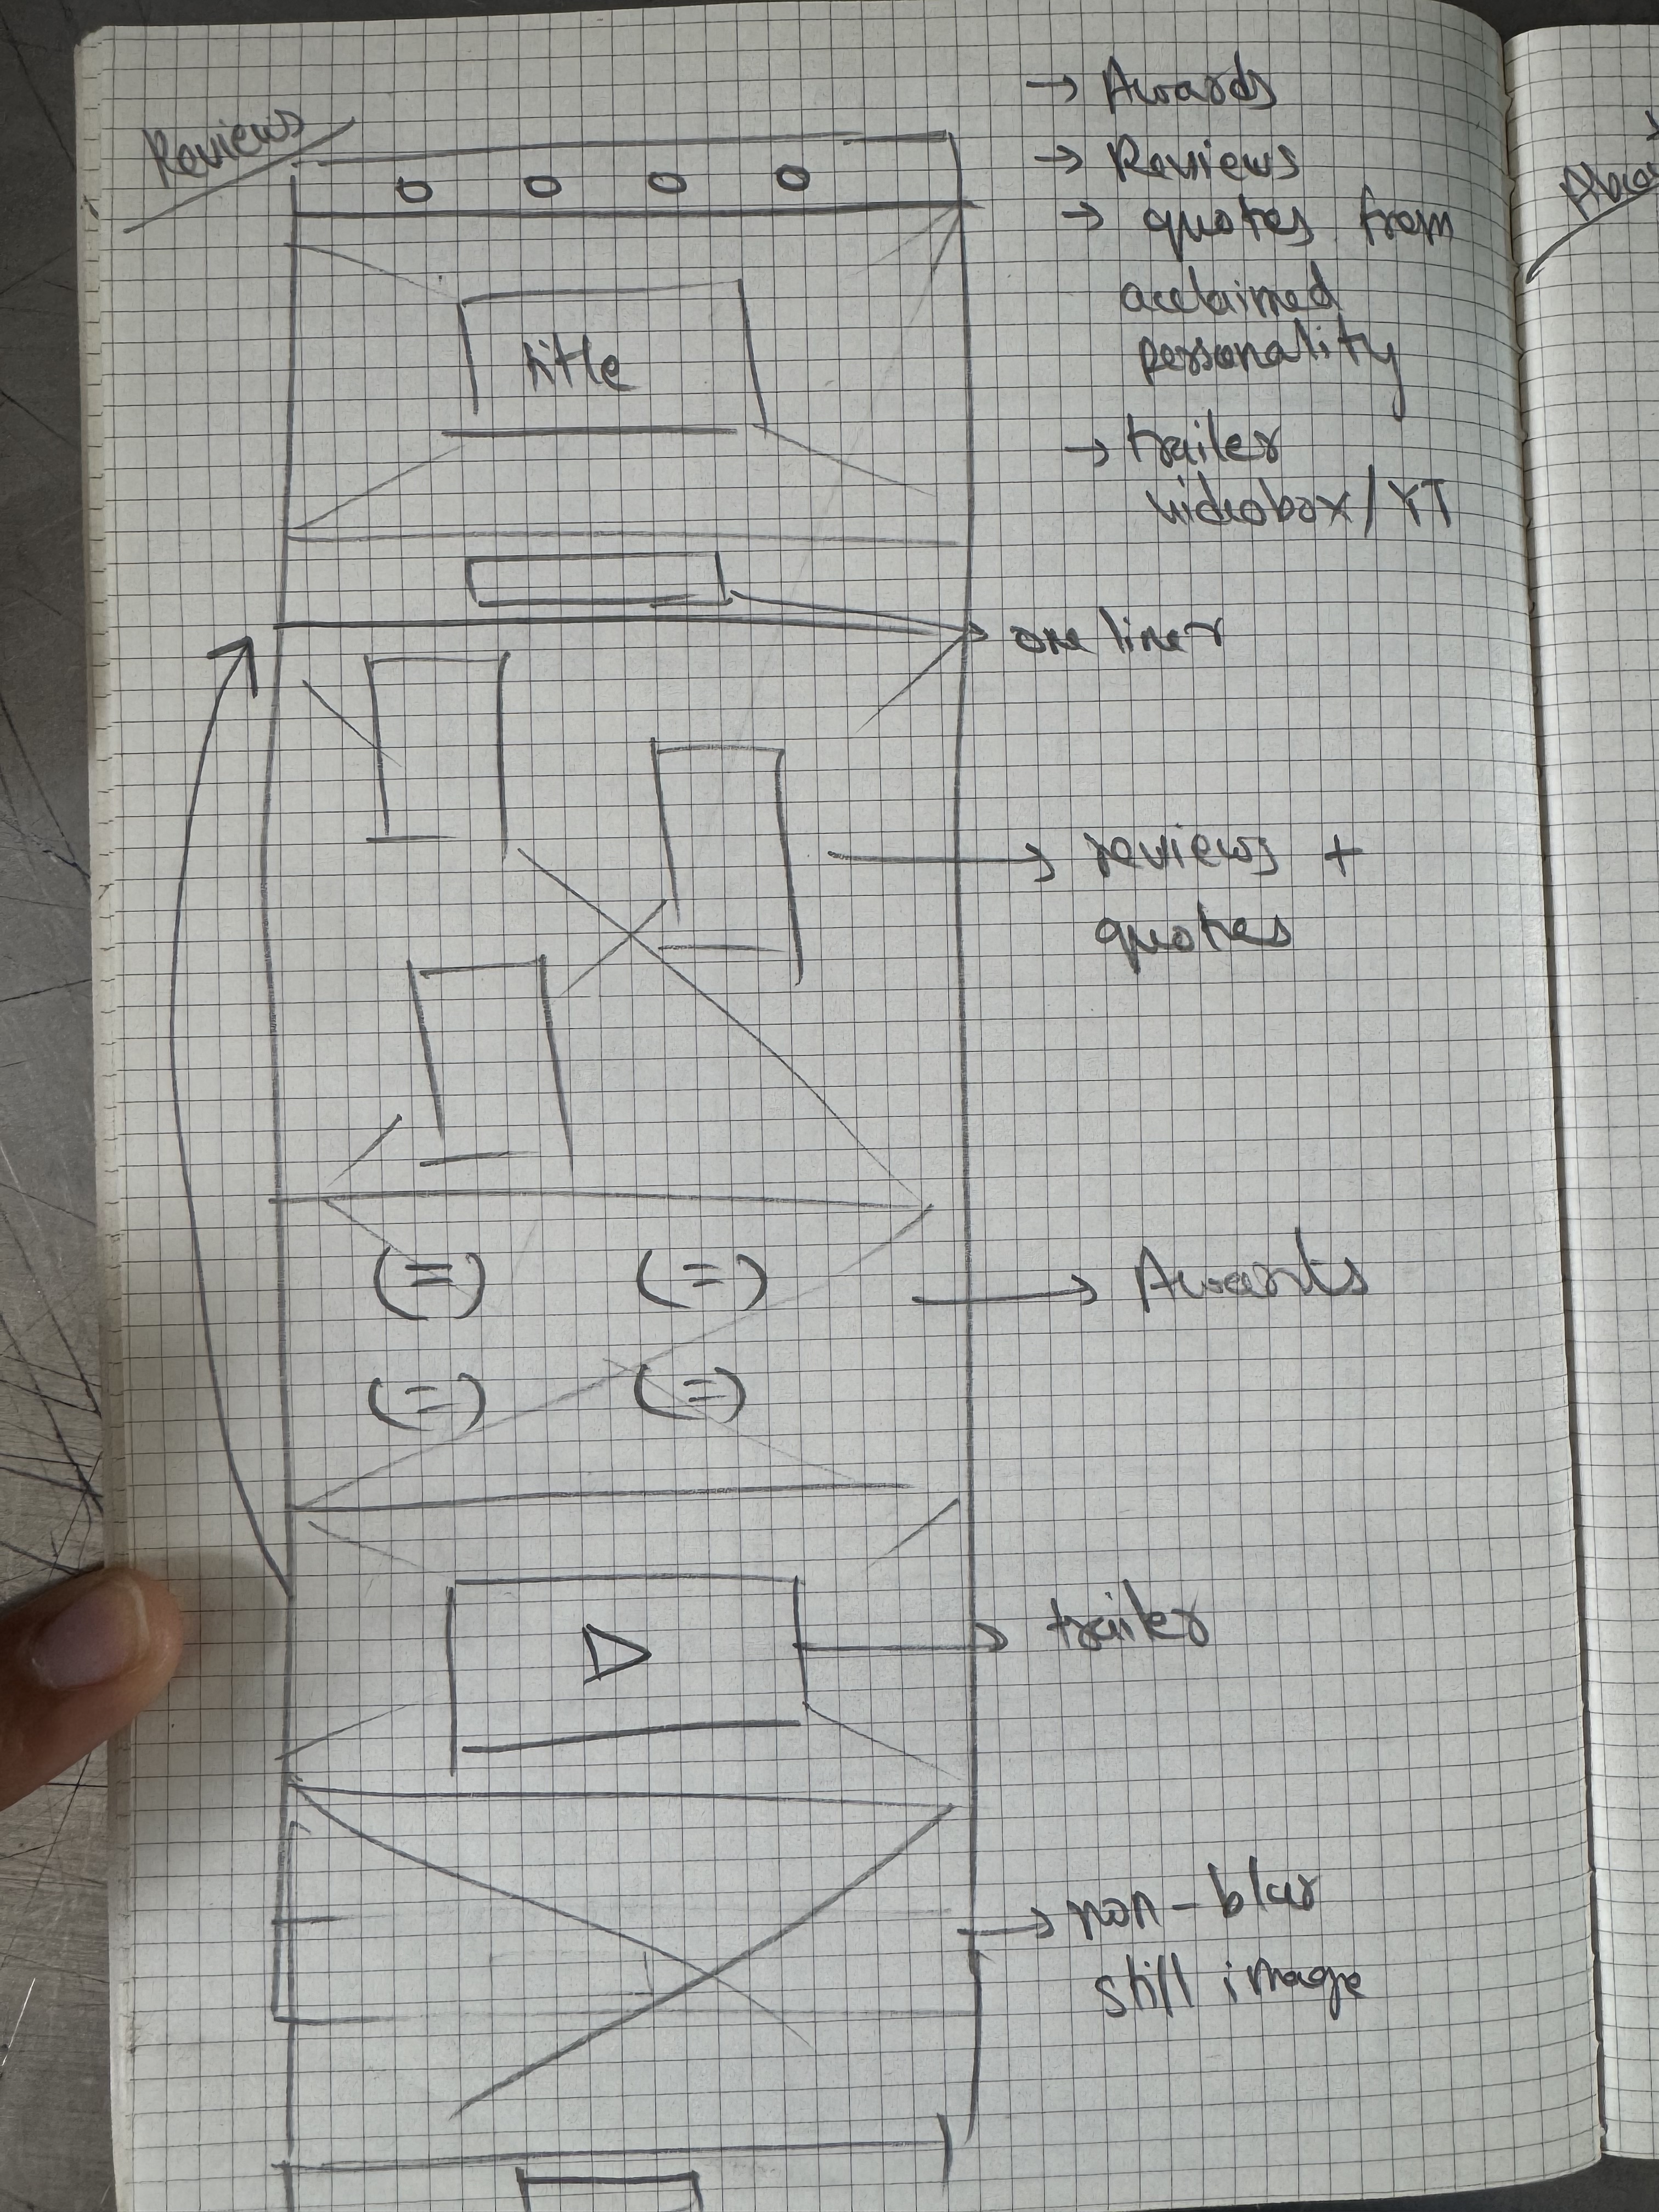 Reviews
→ Awards
→ Reviews
→ quotes from
acclaimed
personality
→ trailer
videobox/YT
title
→ one liner
→ reviews +
quotes
→ Awards
→ trailer
→ non-blur
still image